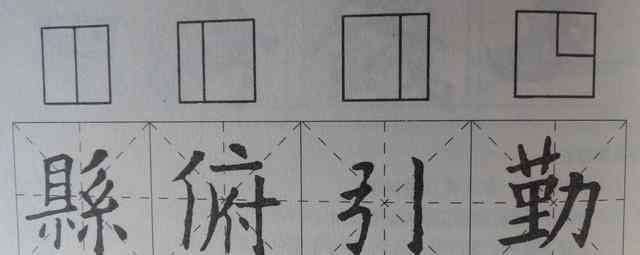 縣俯引勤